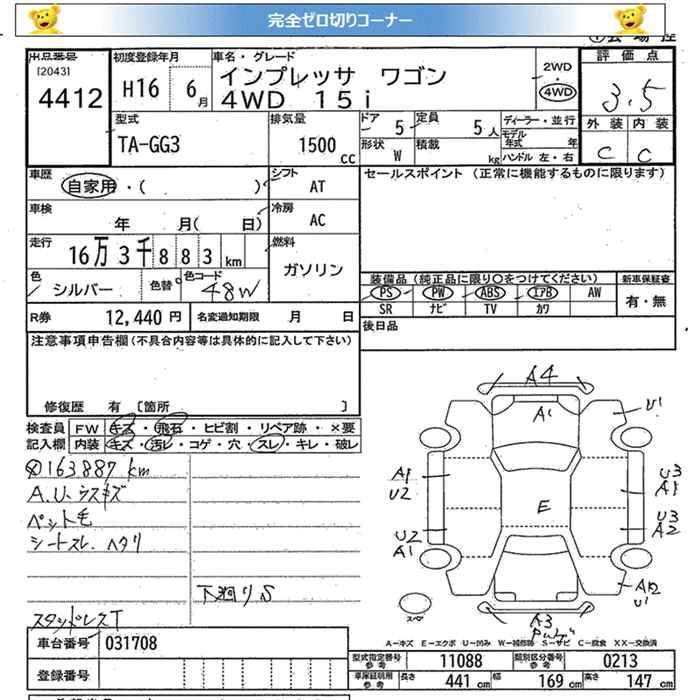 完全ゼロ切りコーナー
出品番号
[2043]
4412
初度登録年月
H16 6月
車名・グレード
インプレッサ ワゴン
4WD 15i
2WD
4WD
評価点
3.5
外装 内装
C C
型式
TA-GG3
排気量
1500 cc
ドア 5
定員 5人
形状 W
積載 kg
ディーラー・並行
モデル年式 年
ハンドル 左・右
車歴
自家用・( )
シフト
AT
車検
年 月( 日)
冷房
AC
走行
16万3千883km
燃料
ガソリン
色
シルバー
色替
色コード
48W
セールスポイント (正常に機能するものに限ります)
装備品 (純正品に限り○をつけてください)
新車保証書
PS PW ABS エアB AW
有・無
SR ナビ TV カワ
後日品
R券 12,440円
名変通知期限 月 日
注意事項申告欄(不具合内容等は具体的に記入して下さい)
修復歴 有 [箇所 ]
検査員
記入欄
FW キズ・飛石・ヒビ割・リペア跡・×要
内装 キズ・汚レ・コゲ・穴・スレ・キレ・破レ
163887km
A.U.ウスキズ
ペット毛
シートスレ.ヘタリ
下廻りS
スタッドレスT
A4
A1
U1
A1
U2
U3
A1
E
U2
A1
U3
A2
U1
A3
スペア
A-キズ E-エクボ U-凹み W-補修跡 S-サビ C-腐食 XX-交換済
車台番号 031708
登録番号
型式指定番号
参考
11088
類別区分番号
参考
0213
車庫証明用
参考
長さ 441cm
幅 169cm
高さ 147cm